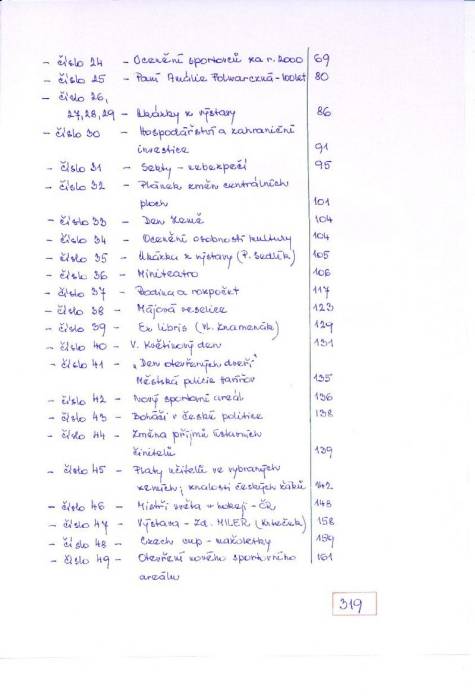 - číslo 24 - Ocenění sportovců za r. 2000 69
- číslo 25 - Paní Amálie Polwarczná - 100 let 80
- číslo 26,
27, 28, 29 - Ukázky z výstavy 86
- číslo 30 - Hospodářství a zahraniční
investice 91
- číslo 31 - Sekty - nebezpečí 95
- číslo 32 - Plánek změn centrálních
ploch 101
- číslo 33 - Den Země 104
- číslo 34 - Ocenění osobností kultury 104
- číslo 35 - Ukázka z výstavy (P. Sedlík) 105
- číslo 36 - Miniteatro 106
- číslo 37 - Rodina a rozpočet 117
- číslo 38 - Májová veselice 123
- číslo 39 - Ex libris (Vl. Znamenák) 129
- číslo 40 - V. Květinový den 131
- číslo 41 - „Den otevřených dveří"
Městská policie 135
- číslo 42 - Nový sportovní areál 136
- číslo 43 - Boháči v české politice 138
- číslo 44 - Změna příjmů ústavních
činitelů 139
- číslo 45 - Platy učitelů ve vybraných
zemích; znalosti českých žáků 142
- číslo 46 - Mistři světa v hokeji - ČR 148
- číslo 47 - Výstava - Zd. MILER (Krteček) 158
- číslo 48 - Czech cup - mažoretky 159
- číslo 49 - Otevření nového sportovního 161
areálu
319